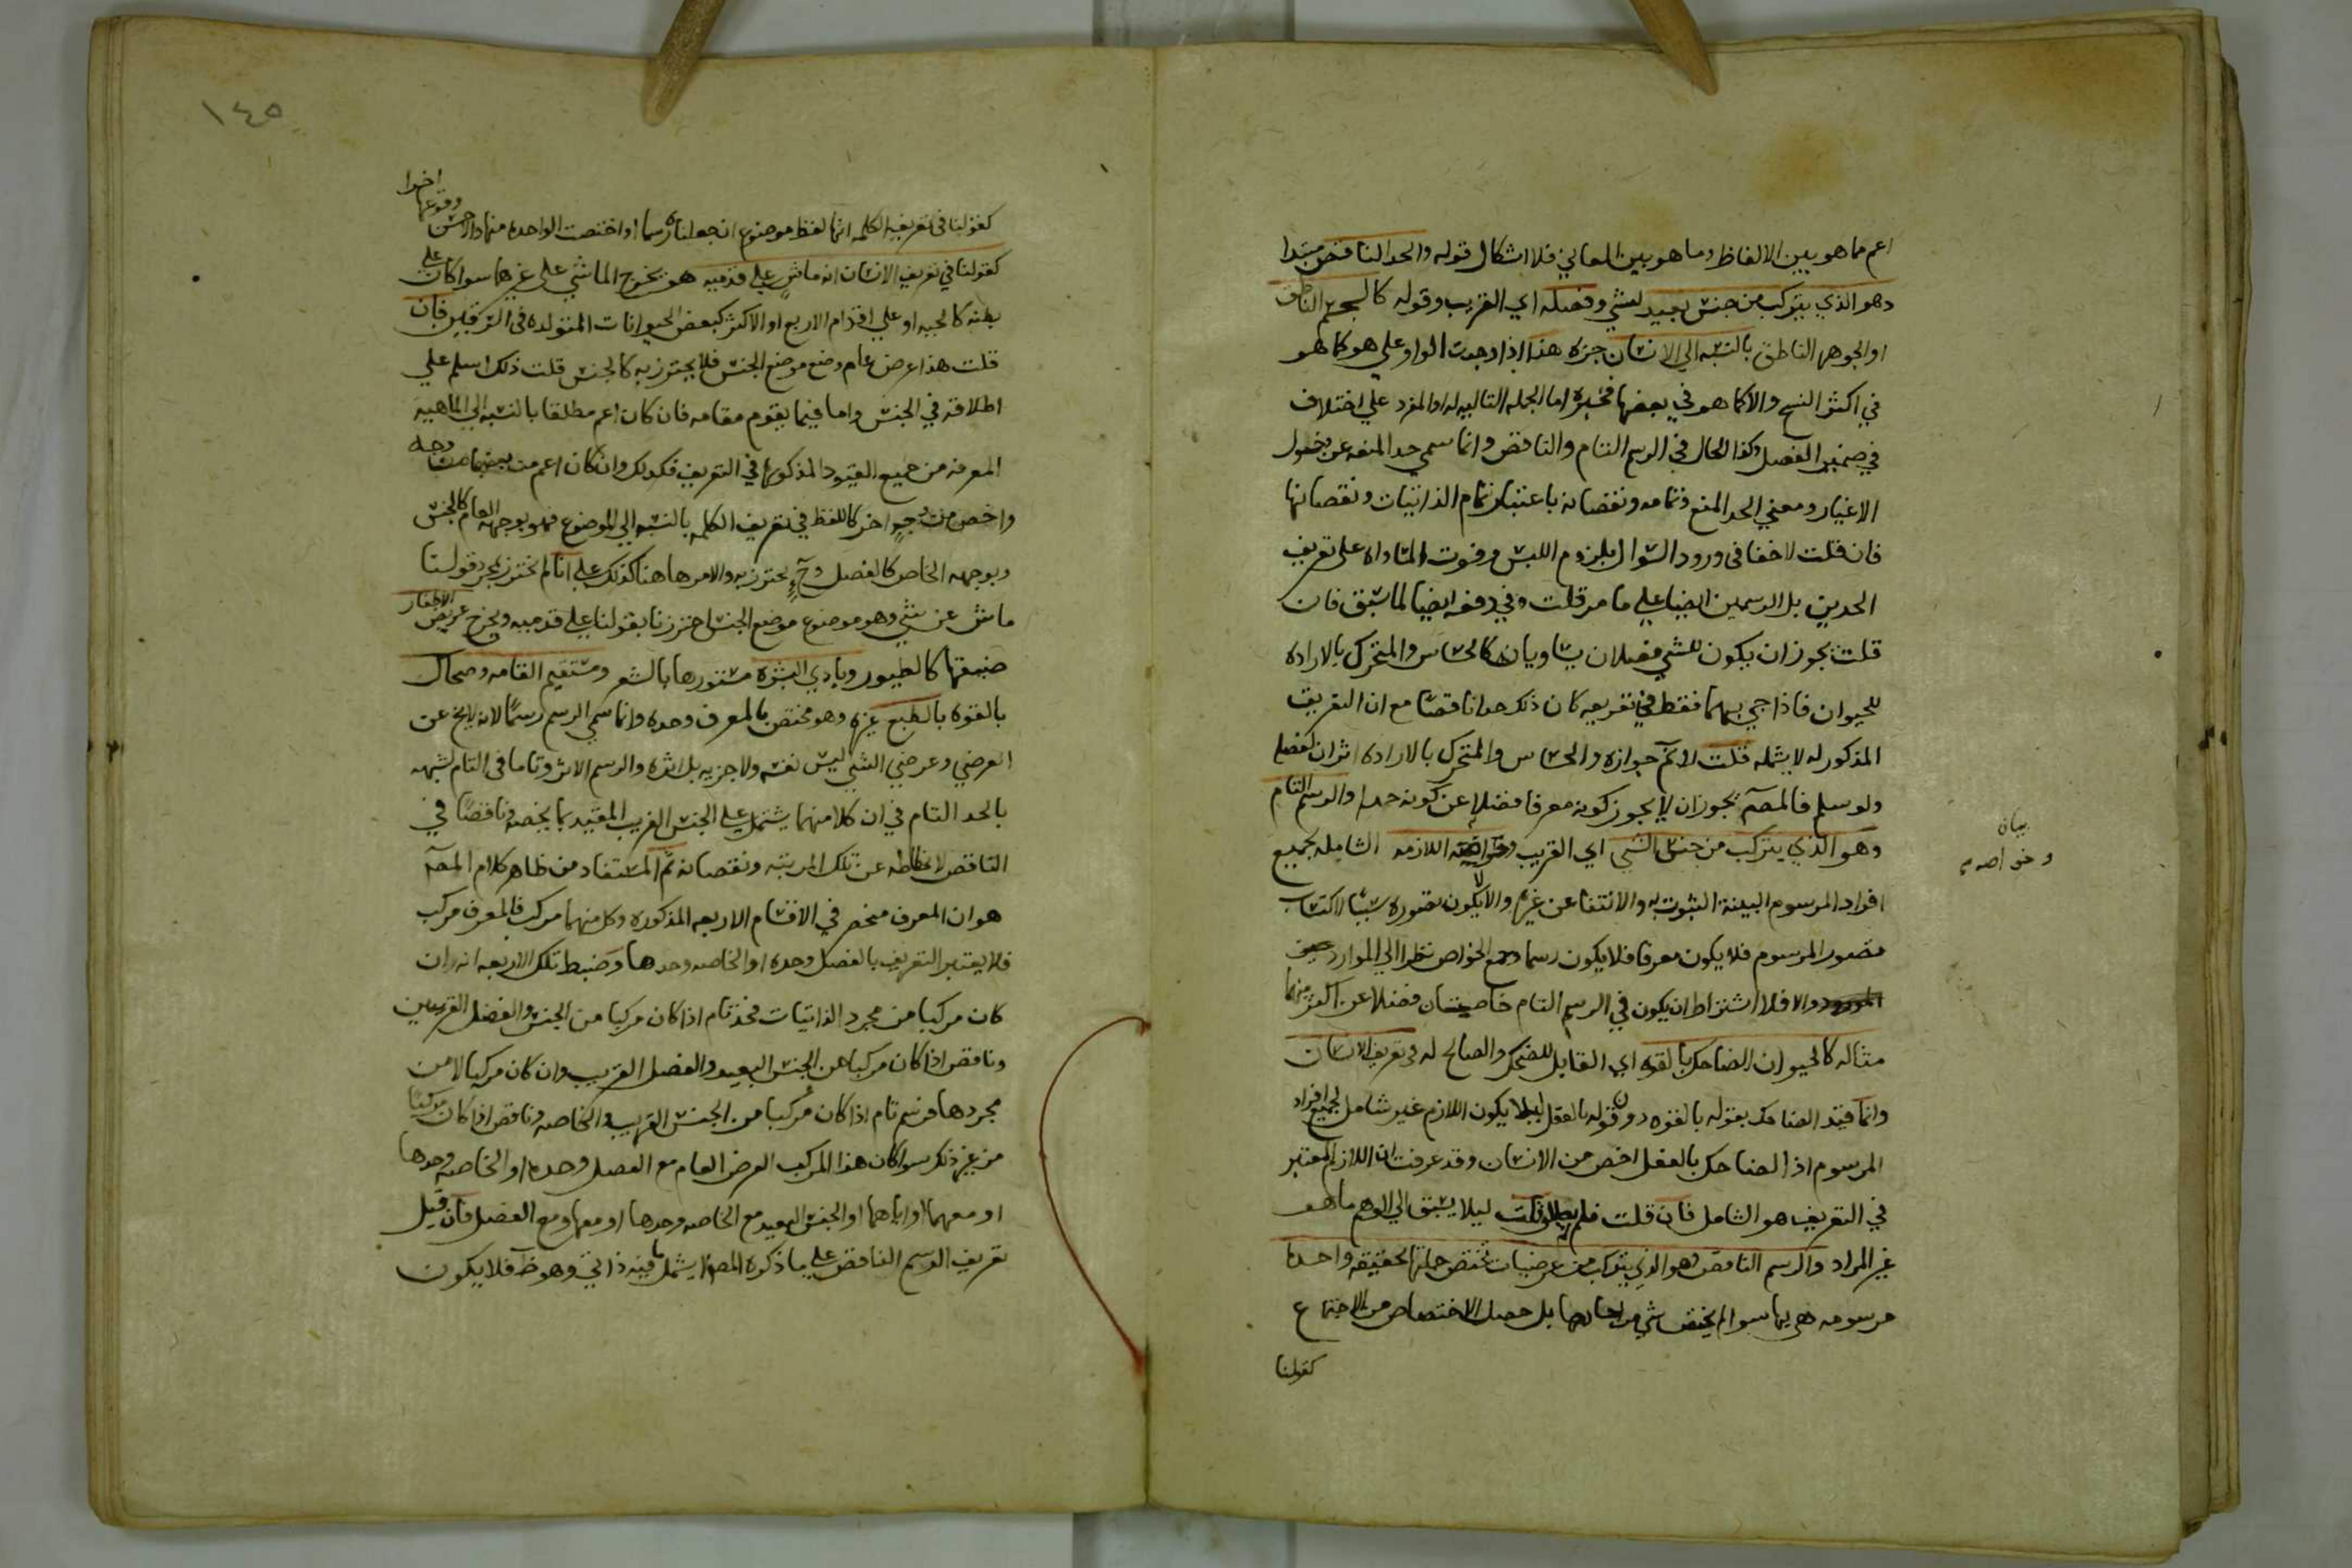 اعم مما هو بين الالفاظ وما هو بين المعاني فلا اشكال قوله والحد الناقص مبتدا
وهو الذي يتركب من جنس بعيد للشي وفصله اي القريب وقوله كالجسم الناطق
او الجوهر الناطق بالنسبه الي الانسان جزه هذا اذا وجدت الواو علي هو كما هو
في اكثر النسخ والا كما هو في بعضها فخبره اما الجمله التاليه له او المفرد علي اختلاف
في ضمير الفصل وكذا الحال في الرسم التام والناقص وانما سمي حدا لمنعه عن دخول
الاغيار ومعني الحد المنع وتمامه ونقصانه باعتبار تمام الذاتيات ونقصانها
فان قلت لا خفا في ورود السوال بلزوم اللبس وفوت المساواه علي تعريف
الحدين بل الرسمين ايضا علي ما مر قلت وفي دفعه ايضا لما سبق فان
قلت يجوز ان يكون للشي فصلان يساويانه كالحساس والمتحرك بالاراده
للحيوان فاذا جي بهما فقط في تعريفه كان ذلك حدا ناقصا مع ان التعريف
المذكور له لا يشمله قلت لا نم جوازه والحساس والمتحرك بالاراده اثران لفصل
ولو سلم فالمصم يجوز ان لا يجوز كونه معرفا فضلا عن كونه حدا والرسم التام
وهو الذي يتركب من جنس الشي اي القريب وخواصه اللازمه الشامله لجميع
افراد المرسوم البينة الثبوت له والانتفا عن غيره والا لا يكون تصوره سببا لاكتساب
تصور المرسوم فلا يكون معرفا فلا يكون رسما وجمع الخواص نظرا الي الموارد
والا فلا اشتراط ان يكون في الرسم التام خاصيتان فضلا عن اكثر منهما
مثاله كالحيوان الضاحك بالقوه اي القابل للضحك والصالح له في تعريف الانسان
وانما قيد الضاحك بقوله بالقوه دون قوله بالفعل ليلا يكون اللازم غير شامل لجميع افراد
المرسوم اذ الضاحك بالفعل اخص من الانسان وقد عرفت ان اللازم المعتبر
في التعريف هو الشامل فان قلت فلم قلت ليلا يسبق الي الوهم ما هو
غير المراد والرسم الناقص وهو الذي يتركب من عرضيات تختص جملتها بحقيقه واحده
مرسومه هي بها سوا لم يختص شي من احادها بل حصل الاختصاص من الاجتماع
كقولنا
بيان
وخواصه
١٤٥
كقولنا في تعريف الكلمه انها لفظ موضوع ان جعلناه رسما او اختصت الواحده منها دالاخص
وقوعها اخرا
كقولنا في تعريف الانسان انه ماش علي قدميه هو يخرج الماشي علي غيرهما سوا كان علي
بطنه كالحيه او علي اقدام الاربع او الاكثر كبعض الحيوانات المتولده في فان
قلت هذا عرض عام وضع موضع الجنس فلا يحترز به كالجنس قلت ذلك اسلم علي
اطلاقه في الجنس واما فيما يقوم مقامه فان كان اعم مطلقا بالنسبه الي الماهيه
المعرفه من جميع القيود المذكوره في التعريف فكذلك وان كان اعم من بعضها من وجه
واخص من وجه اخر كاللفظ في تعريف الكلمه بالنسبه الي الموضوع فهو بوجهه العام كالجنس
وبوجهه الخاص كالفصل وح يحترز به والامر هاهنا كذلك علي انا لم نحترز بمجرد قولنا
ماش عن شي وهو موضوع موضع الجنس احترزنا بقولنا علي قدميه ويخرج عريض الاظفار
ضيقها كالطيور وبادي البشره مستورها بالشعر ومستقيم القامه وضحاك
بالقوه بالطبع غيره وهو مختص بالمعرف وحده وانما سمي الرسم رسما لانه لا يخ عن
العرضي وعرضي الشي ليس نفسه ولا جزيه بل اثره والرسم الاثر وتاما في التام لشبهه
بالحد التام في ان كلا منهما يشتمل علي الجنس القريب المقيد بما يخصه وناقصا في
الناقص لانحطاطه عن تلك المرتبه ونقصانه ثم المستفاد من ظاهر كلام المصم
هو ان المعرف منحصر في الاقسام الاربعه المذكوره وكل منهما مركب فالمعرف مركب
فلا يعتبر التعريف بالفصل وحده او الخاصه وحدها وضبط تلك الاربعه انه ان
كان مركبا من مجرد الذاتيات فحد تام اذا كان مركبا من الجنس والفصل القريبين
وناقص اذا كان مركبا من الجنس البعيد والفصل القريب وان كان مركبا لا من
مجردها فرسم تام اذا كان مركبا من الجنس القريب والخاصه وناقص اذا كان مركبا
من غير ذلك سوا كان هذا المركب العرض العام مع الفصل وحده او الخاصه وحدها
او معهما او اياهما او الجنس البعيد مع الخاصه وحدها او معها ومع الفصل فان قيل
تعريف الرسم الناقص علي ما ذكره المصم لا يشمل ما فيه ذاتي وهو ظ فلا يكون